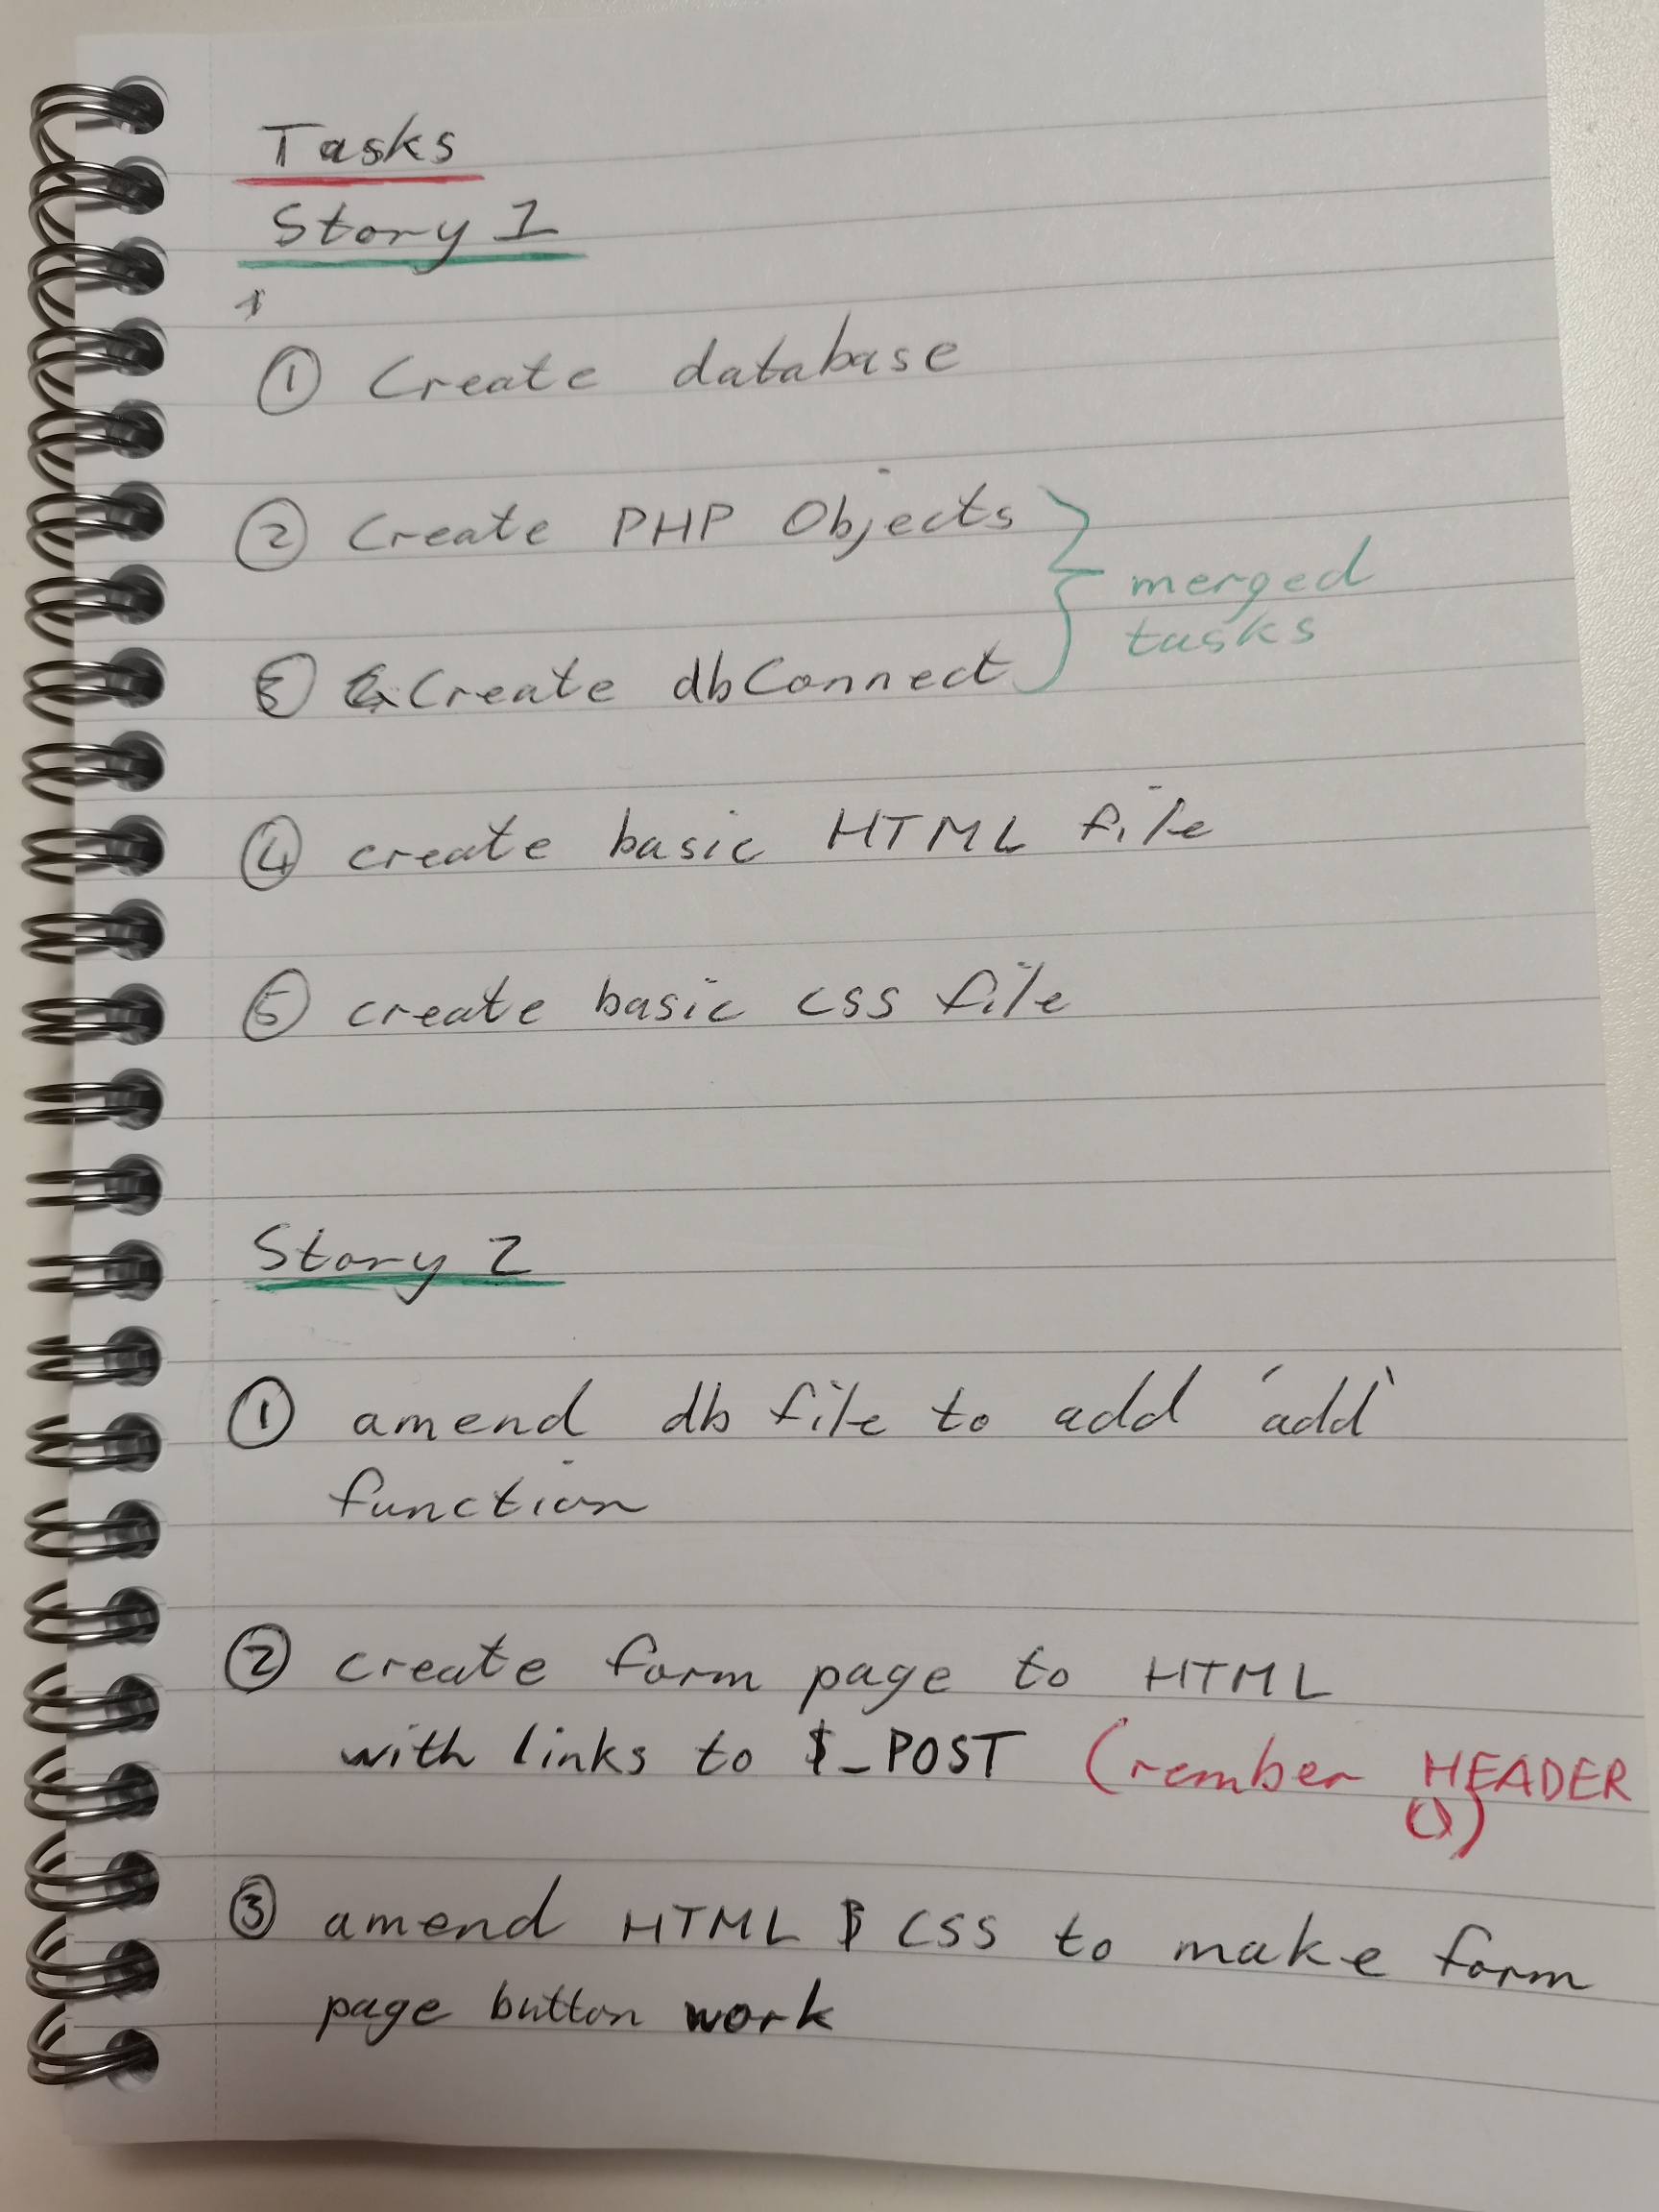 Tasks
Story 1
① Create database
② Create PHP Objects
merged
tasks
③ Create dbConnect
④ create basic HTML file
⑤ create basic CSS file
Story 2
① amend db file to add 'add'
function
② create form page to HTML
with links to $_POST (rember HEADER
())
③ amend HTML & CSS to make form
page button work